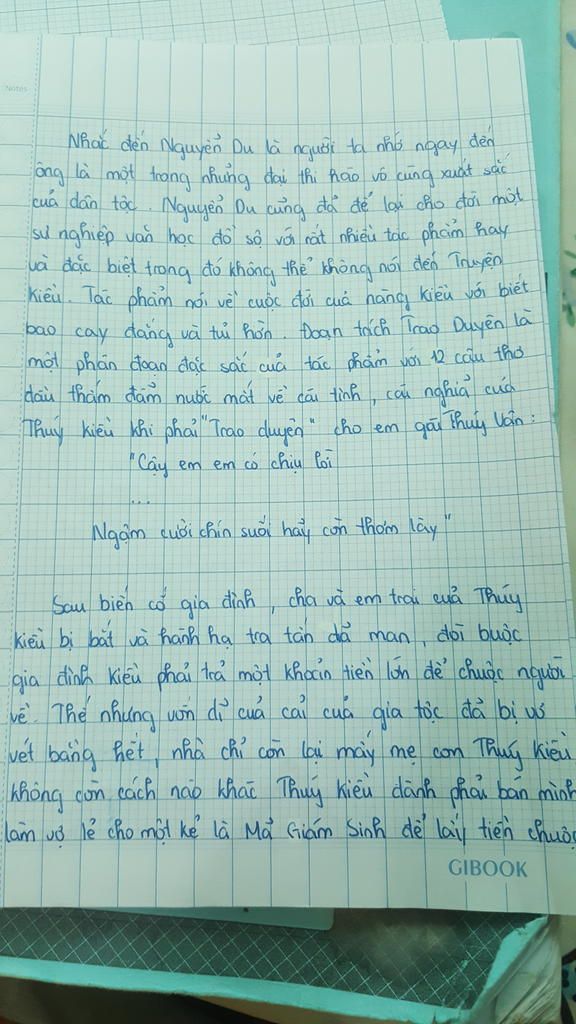 Notes
Nhắc đến Nguyễn Du là người ta nhớ ngay đến
ông là một trong những đại thi hào vô cùng xuất sắc
của dân tộc. Nguyễn Du cũng đã để lại cho đời một
sự nghiệp văn học đồ sộ với rất nhiều tác phẩm hay
và đặc biệt trong đó không thể không nói đến Truyện
Kiều. Tác phẩm nói về cuộc đời của nàng Kiều với biết
bao cay đắng và tủi hờn. Đoạn trích Trao Duyên là
một phân đoạn đặc sắc của tác phẩm với 12 câu thơ
đầu thấm đẫm nước mắt về cái tình, cái nghĩa của
Thúy Kiều khi phải "Trao duyên" cho em gái Thúy Vân:
"Cậy em em có chịu lời
...
Ngậm cười chín suối hãy còn thơm lây"
Sau biến cố gia đình, cha và em trai của Thúy
Kiều bị bắt và hành hạ tra tấn dã man, đòi buộc
gia đình Kiều phải trả một khoản tiền lớn để chuộc người
về. Thế nhưng vốn dĩ của cải của gia tộc đã bị vơ
vét bằng hết, nhà chỉ còn lại mấy mẹ con Thúy Kiều
không còn cách nào khác Thúy Kiều đành phải bán mình
làm vợ lẽ cho một kẻ là Mã Giám Sinh để lấy tiền chuộc
GIBOOK